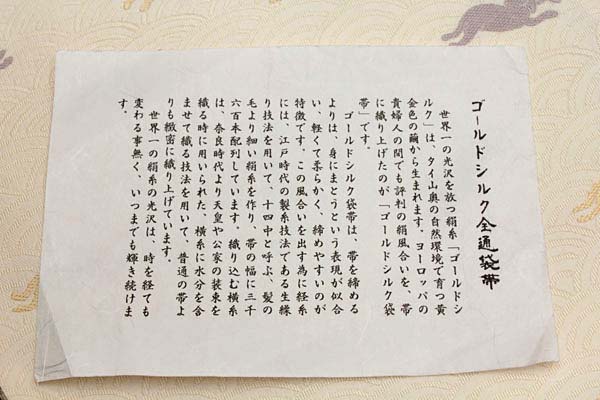 ゴールドシルク全通袋帯
世界一の光沢を放つ絹糸「ゴールドシ
ルク」は、タイ山奥の自然環境で育つ黄
金色の繭から生まれます。ヨーロッパの
貴婦人の間でも評判の絹風合いを、帯
に織り上げたのが「ゴールドシルク袋
帯」です。
ゴールドシルク袋帯は、帯を締める
よりは、身にまとうという表現が似合
い、軽くて柔らかく、締めやすいのが
特徴です。この風合いを出す為に経糸
には、江戸時代の製糸技法である生繰
り技法を用いて、十四中と呼ぶ、髪の
毛より細い絹糸を作り、帯の幅に三千
六百本配列しています。織り込む横糸
は、奈良時代より天皇や公家の装束を
織る時に用いられた、横糸に水分を含
ませて織る技法を用いて、普通の帯よ
りも緻密に織り上げています。
世界一の絹糸の光沢は、時を経ても
変わる事無く、いつまでも輝き続けま
す。